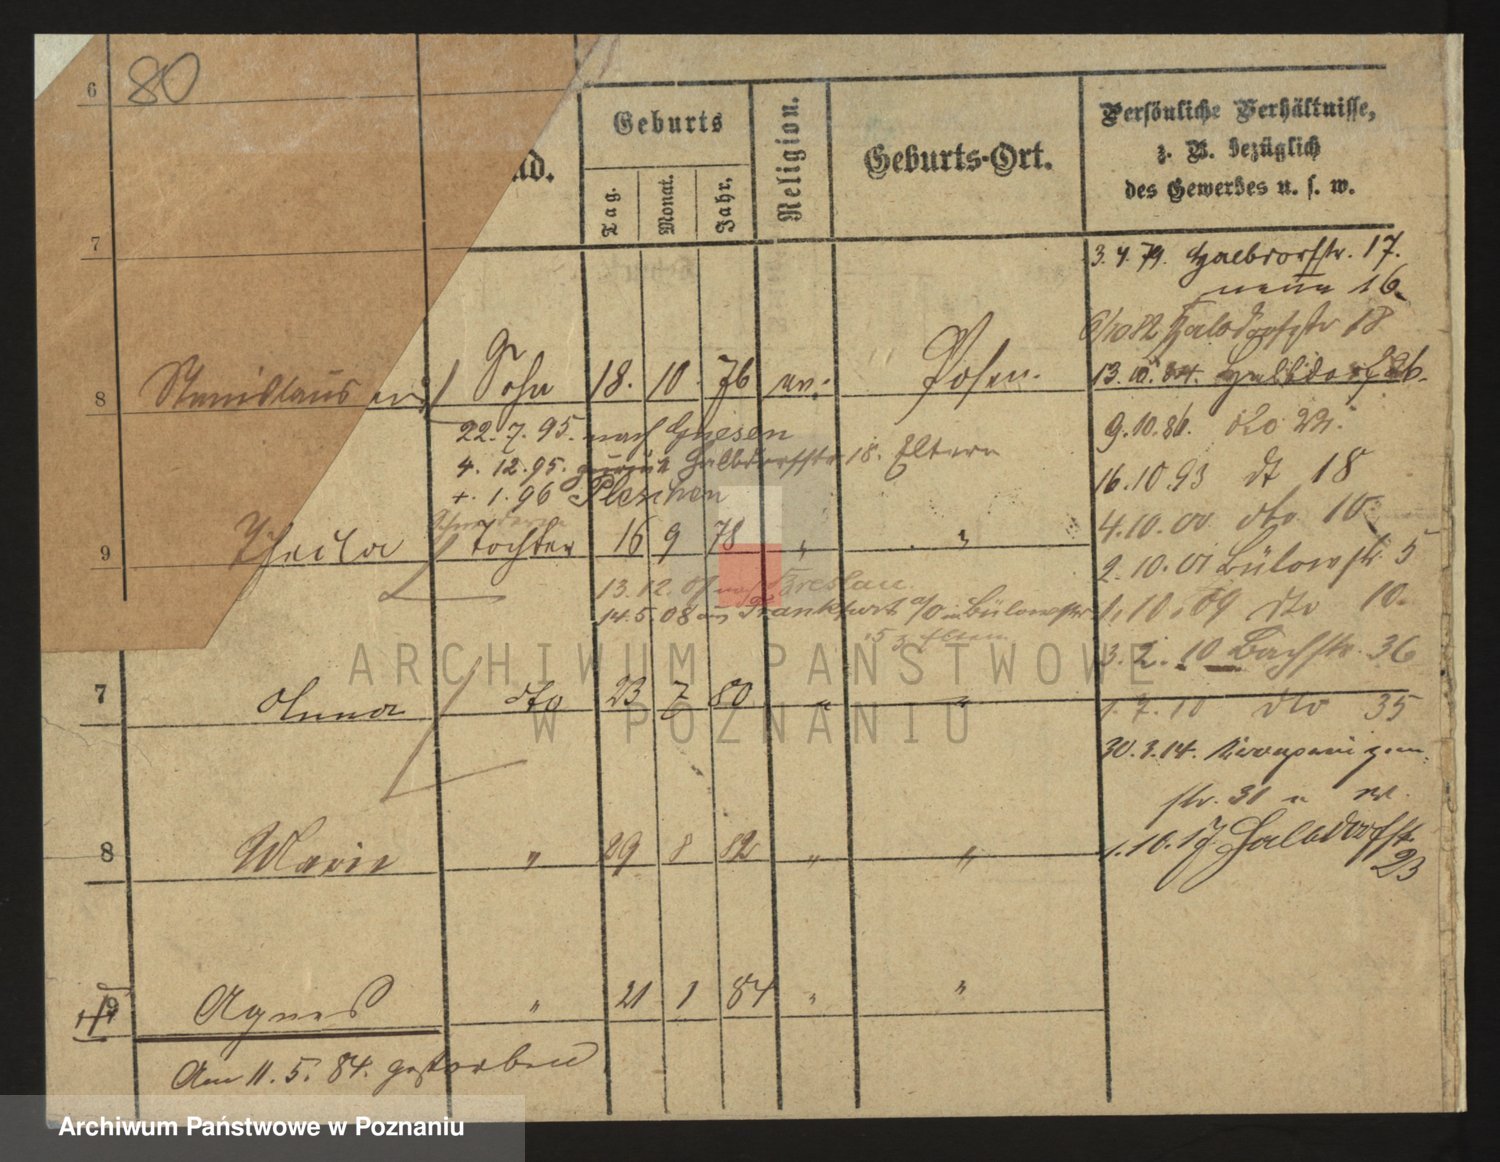 6 80
7
nd.
Geburts
Tag.
Monat.
Jahr,
Religion.
Geburts-Ort.
Persönliche Verhältnisse,
z. B. bezüglich
des Gewerbes u. s. w.
3. 4. 79. Halbdorfstr. 17.
neue 16
6/10 82 Halbdorfstr 18
8 Stanislaus Sohn 18. 10 76 Posen.
13. 10. 84. Halbdorfstr
22. 7. 95. nach Gnesen
9. 10. 86. dto
4. 12. 95. zurück Halbdorfstr 18. Eltern
16. 10. 93 dt 18
1. 96 Pleschen
4. 10. 00 dto 10
9 Thecla Tochter 16 9 78 " "
2. 10. 01 Bülowstr. 5
13. 12. 07 nach Breslau.
14. 5. 08 aus Frankfurt a/O in Bülowstr
5 z Eltern
1. 10. 09 dto 10.
3. 2. 10 Bachstr. 36
ARCHIWUM PAŃSTWOWE
W POZNANIU
7 Anna dto 23 7 80 " "
1. 7. 10 dto 35
30. 3. 14.
str. 31
8 Marie " 29 8 82 " "
1. 10. 17 Halbdorfstr
23
9 Agnes " 21 1 84 " "
Am 11. 5. 84. gestorben
Archiwum Państwowe w Poznaniu